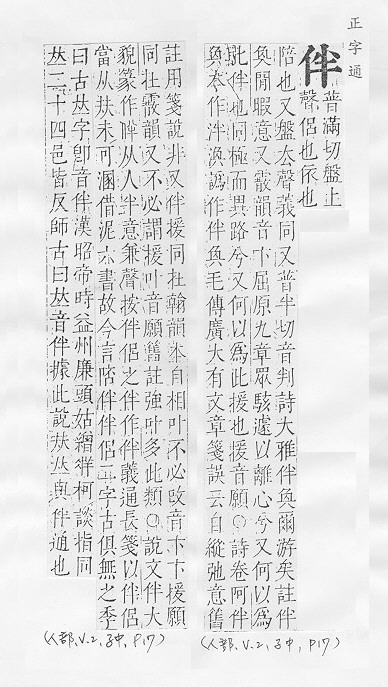 正字通
伴
普滿切盤上
聲侶也依也
陪也又盤去聲義同又普半切音判詩大雅伴奐爾游矣註伴
奐閒暇意又霰韻音卞屈原九章眾駭遽以離心兮又何以爲
此伴也同極而異路兮又何以爲此援也援音願○詩卷阿伴
奐本作泮渙譌作伴奐毛傳廣大有文章箋誤云自縱弛意舊
註用箋說非又伴援同在翰韻本自相叶不必改音卞卞援願
同在霰韻又不必謂援叶音願舊註強叶多此類○說文伴大
貌篆作伴从人半意兼聲按伴侶之伴作伴義通長箋以伴侶
當从㚘未可溷借泥六書故今言陪伴伴侶二字古俱無之季
曰古𠀤字卽音伴漢昭帝時益州廉頭姑繒牂柯談指同
𠀤二十四邑皆反師古曰𠀤音伴據此說㚘𠀤與伴通也
(人部,V.2,子中,P17)
(人部,V.2,子中,P17)